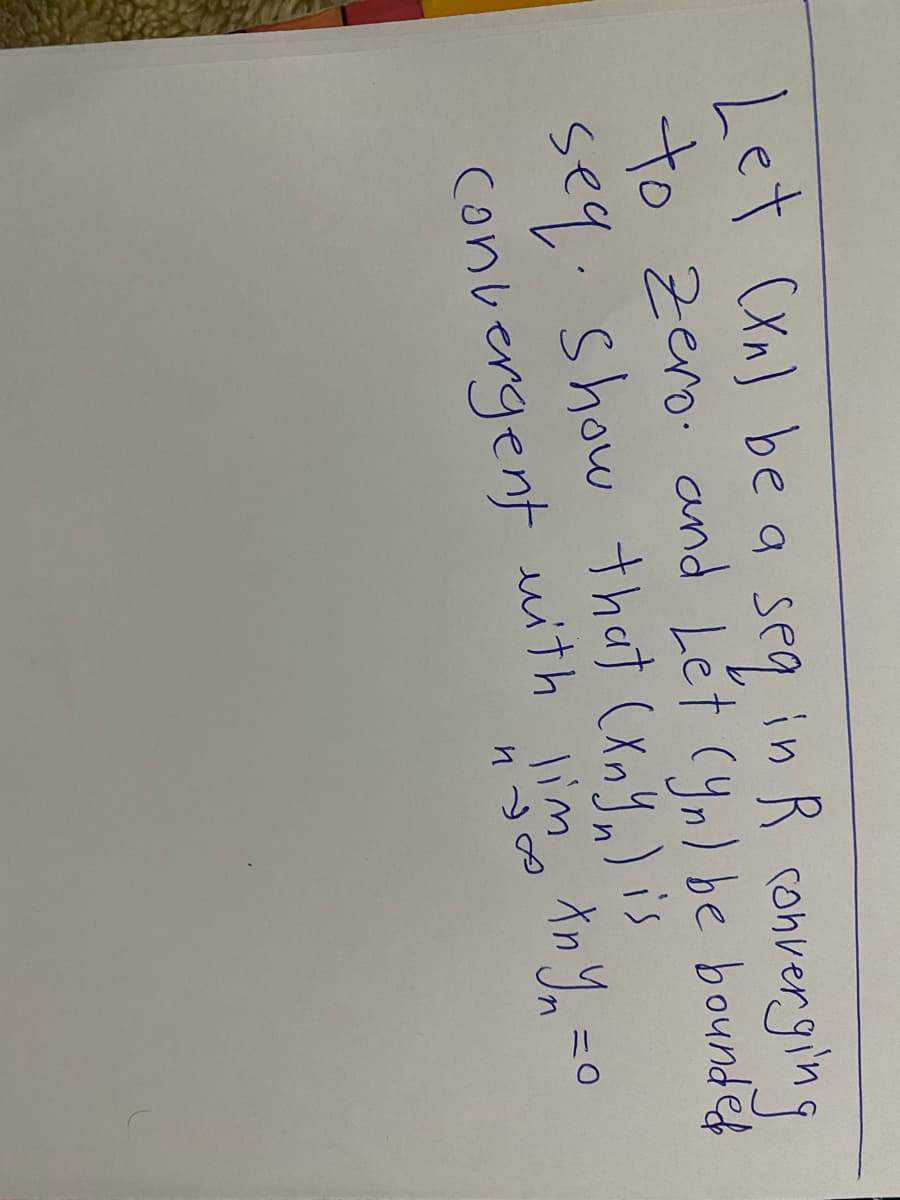 Let (xn) be a seq in R converging
to zero. and Let (yn) be bounded
seq. show that (xnyn) is
convergent with lim xnyn = 0
n→∞